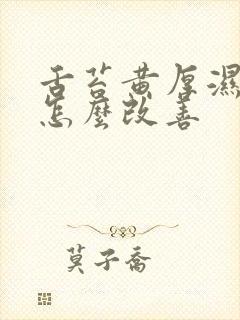 舌苔黄厚濕
怎麼改善
莫子喬